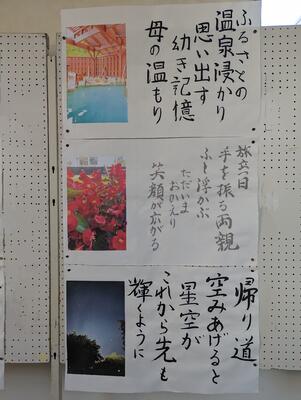 ふるさとの
温泉浸かり
思い出す
幼き記憶
母の温もり
旅立つ日
手を振る両親
ふと浮かぶ
ただいま
おかえり
笑顔が広がる
帰り道
空みあげると
星空が
これから先も
輝くように